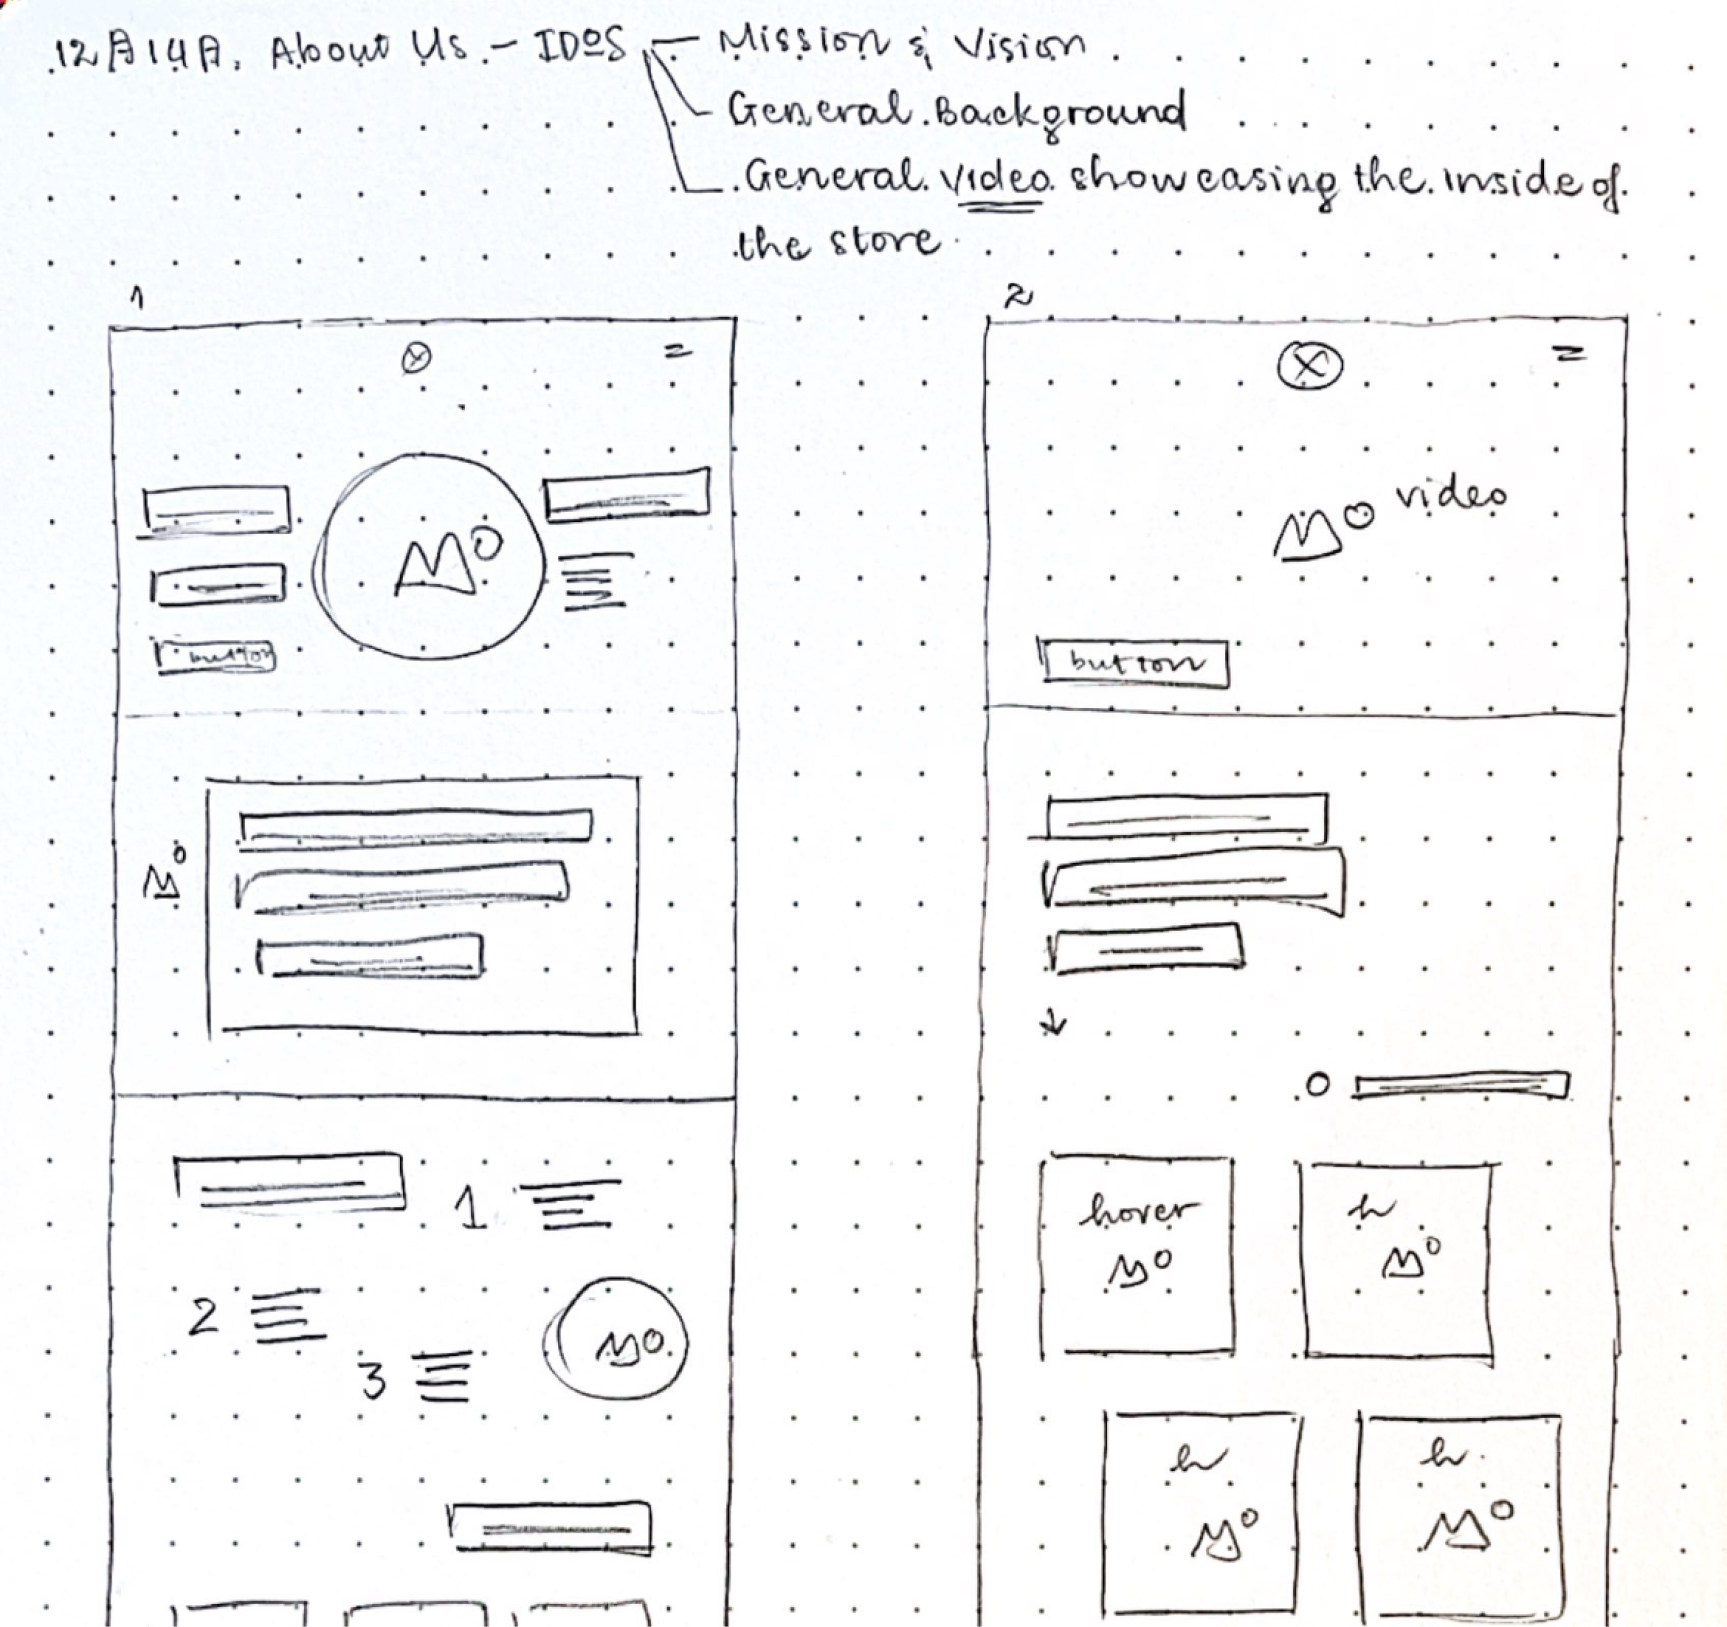 12月14日. About Us. - IDOS - Mission & Vision
General Background
General video showcasing the inside of
the store
1
2
video
button
button
1
2
3
hover
h
h
h